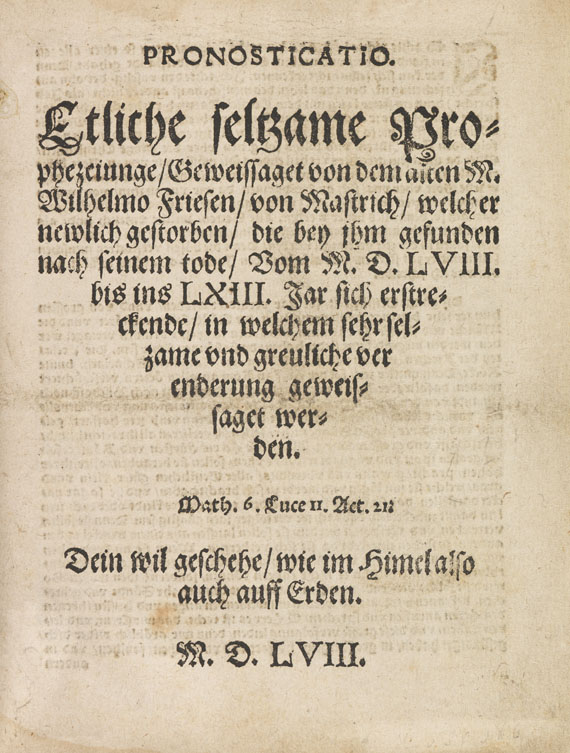 PRONOSTICATIO.
Etliche seltzame Pro⸗
phezeiunge/Geweissaget von dem alten M.
Wilhelmo Friesen/ von Mastrich/ welcher
newlich gestorben/ die bey jhm gefunden
nach seinem tode/ Vom M. D. LVIII.
bis ins LXIII. Jar sich erstre⸗
ckende/ in welchem sehr sel⸗
zame vnd greuliche ver
enderung geweis⸗
saget wer⸗
den.
Math. 6. Luce 11. Act. 21:
Dein wil geschehe/ wie im Himel also
auch auff Erden.
M. D. LVIII.